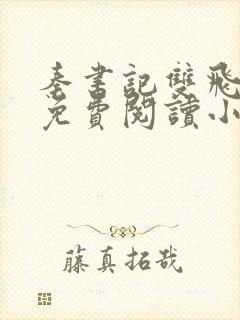 秦書記雙飛
免費閱讀小
藤真拓哉